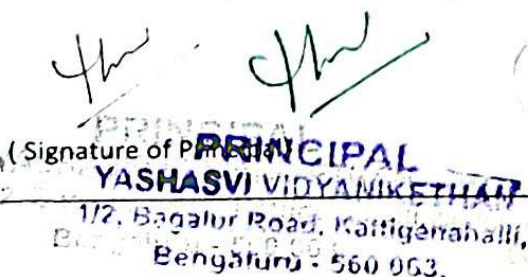 PRINCIPAL
(Signature of Principal)
PRINCIPAL
YASHASVI VIDYANIKETHAN
1/2, Bagalur Road, Kattigenahalli,
Bengaluru - 560 063.